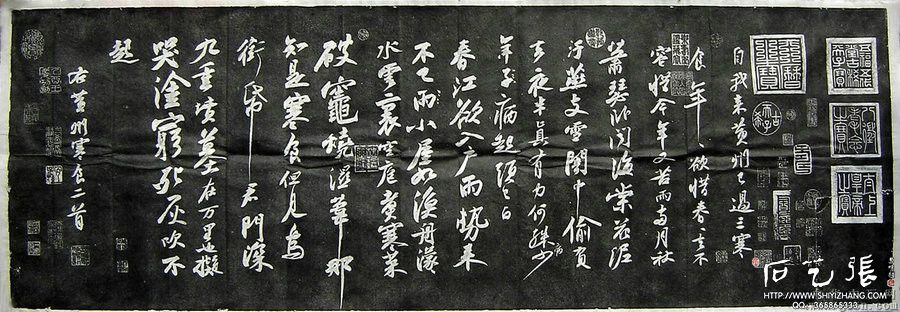 自我来黄州已過三寒
食年〻欲惜春〻去不
容惜今年又苦雨兩月秋
蕭瑟卧聞海棠花泥
汙燕支雪闇中偷負
去夜半真有力何殊少
病
年子病起須已白
春江欲入户雨勢来
不已雨小屋如漁舟濛〻
水雲裏空庖煮寒菜
破竈燒濕葦那
知是寒食但見烏
銜帋君門深
九重墳墓在万里也擬
哭塗窮死灰吹不
起
右黄州寒食二首
石艺張
HTTP://WWW.SHIYIZHANG.COM
QQ:365865333